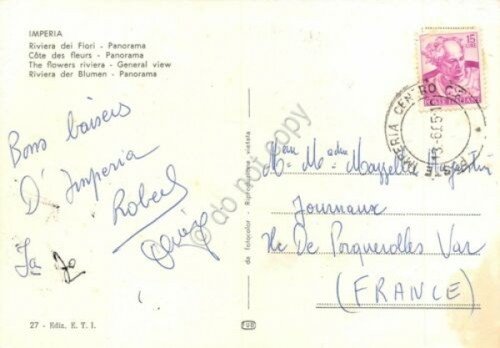 IMPERIA
Riviera dei Fiori - Panorama
Côte des fleurs - Panorama
The flowers riviera - General view
Riviera der Blumen - Panorama
Bons baisers
D'Imperia
Robert
27 - Ediz. E. T. I.
da fotocolor - Riproduzione vietata
do not copy
15
LIRE
POSTE ITALIANE
IMPERIA CENTRO
Journaux
Ile De Porquerolles Var
(FRANCE)